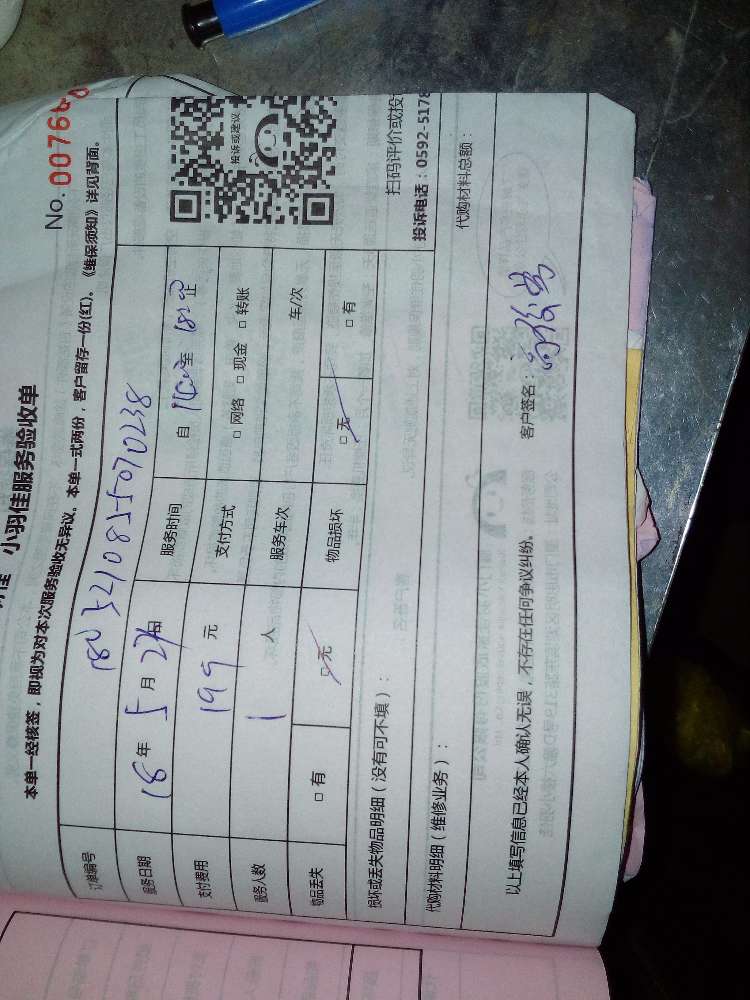 小羽佳服务验收单
No. 00766
本单一经核签，即视为对本次服务验收无异议。本单一式两份，客户留存一份(红)。《维保须知》详见背面。
订单编号 1803210855070238
服务日期 18 年 5 月 27 日 服务时间 自 1400 至 1800 止
支付费用 199 元 支付方式 □ 网络 □ 现金 □ 转账
服务人数 1 人 服务车次 车/次
物品丢失 □ 有 □ 无 物品损坏 □ 无 □ 有
投诉或建议
扫码评价或投
投诉电话：0592-5178
损坏或丢失物品明细（没有可不填）：
代购材料明细（维修业务）： 代购材料总额：
以上填写信息已经本人确认无误，不存在任何争议纠纷。 客户签名：